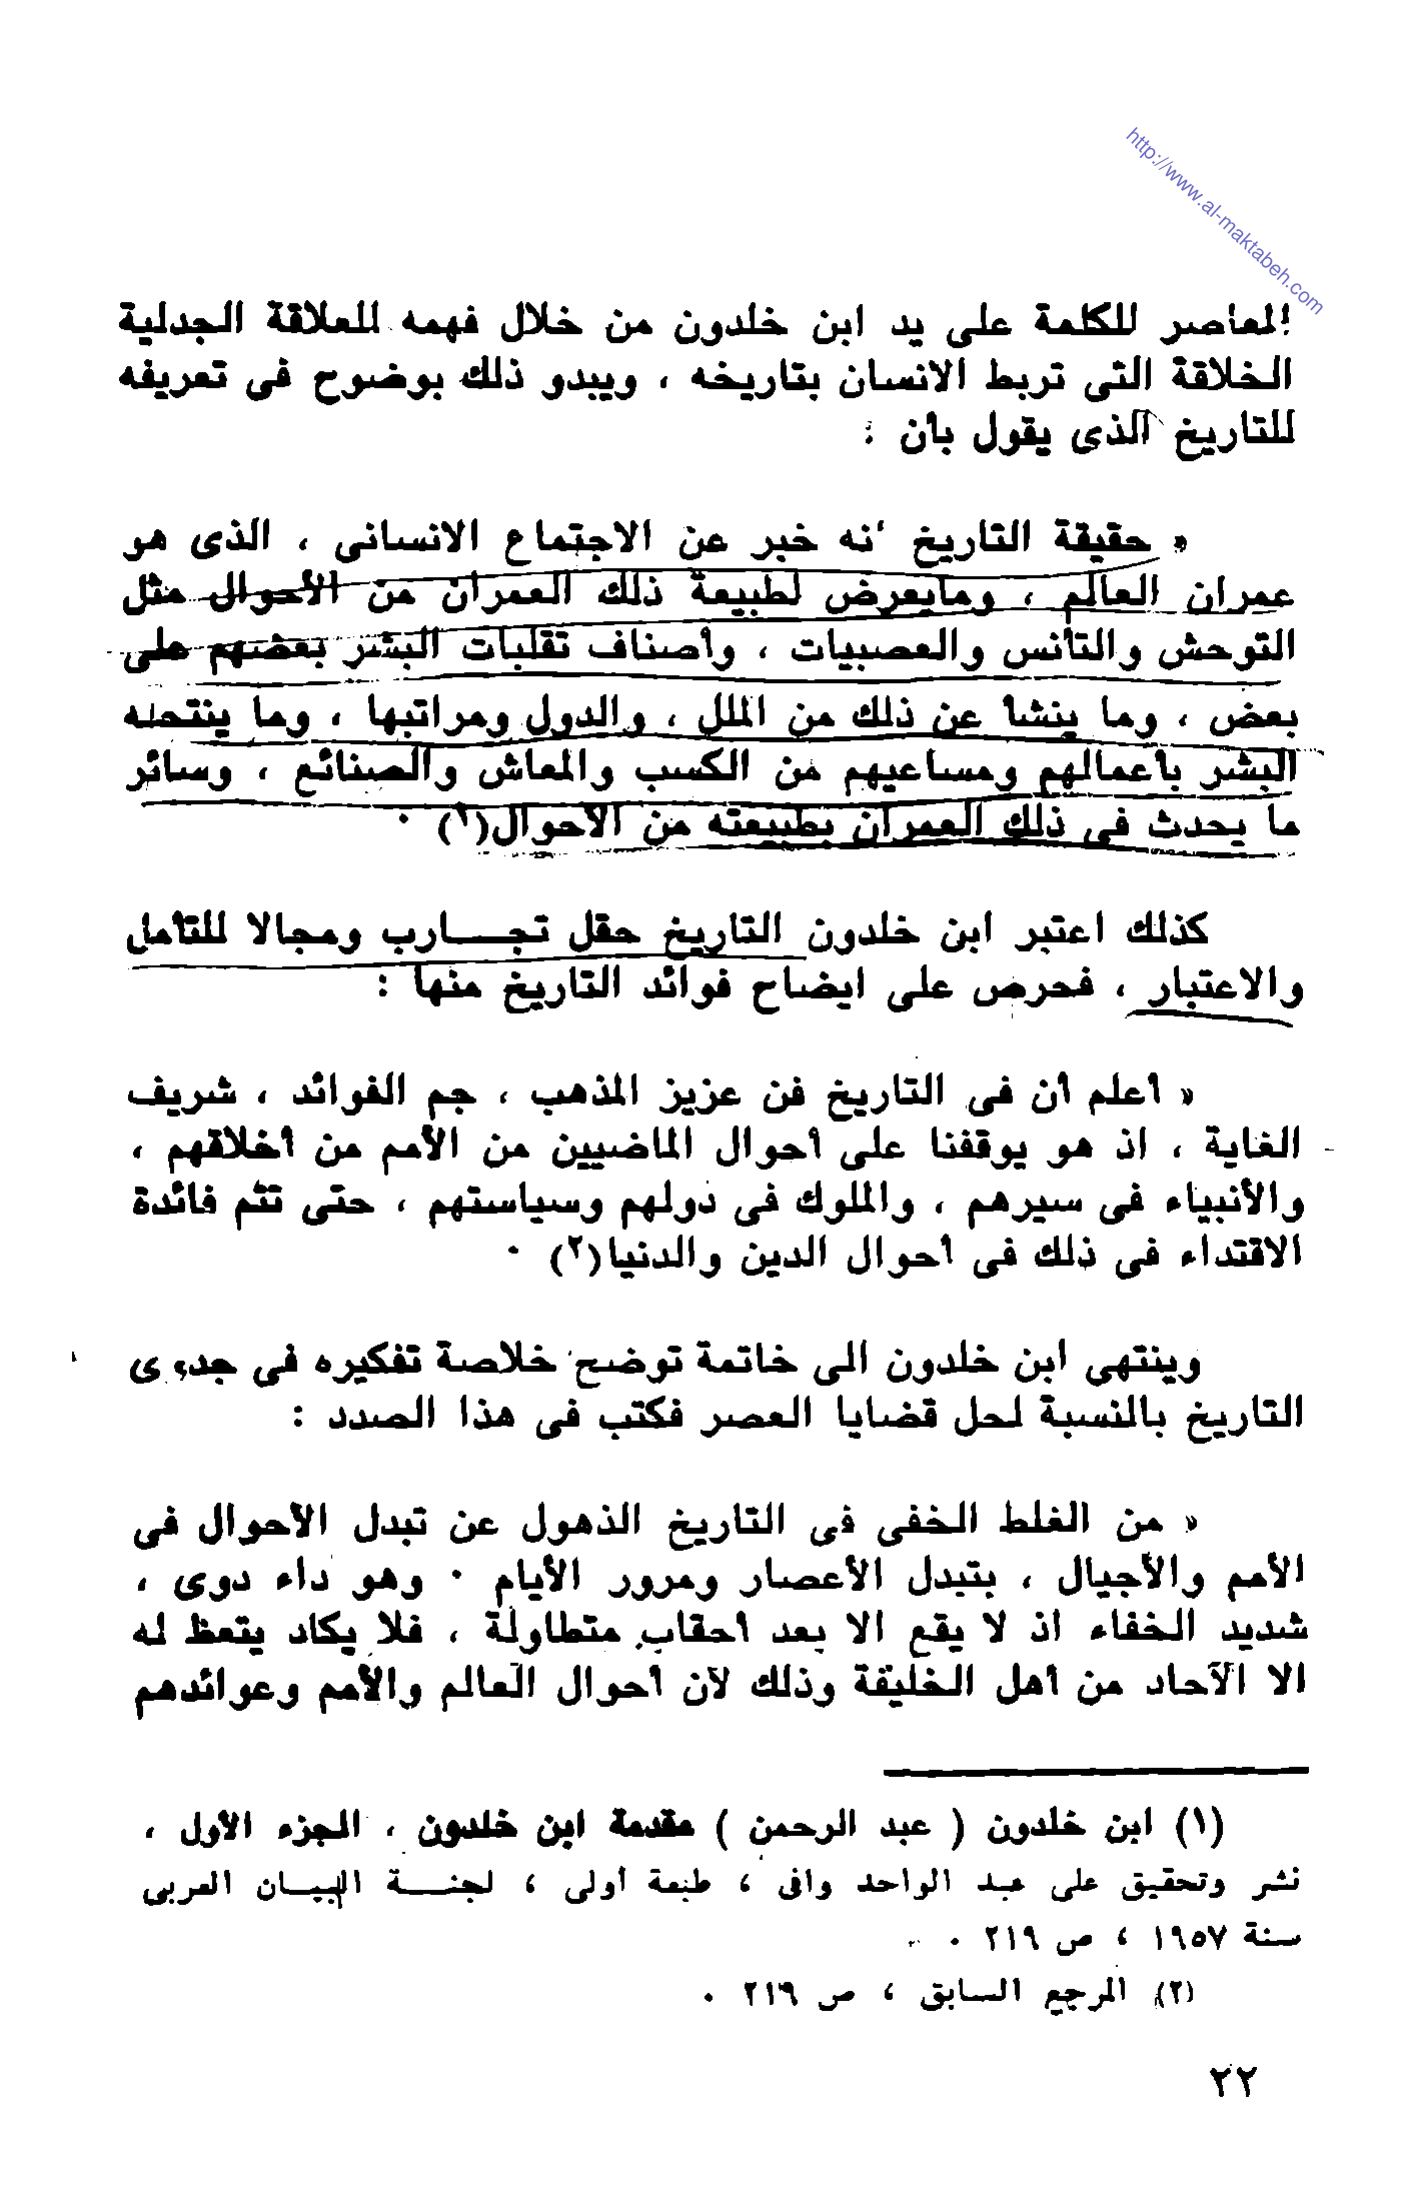 http://www.al-maktabeh.com
المعاصر للكلمة على يد ابن خلدون من خلال فهمه للعلاقة الجدلية
الخلاقة التى تربط الانسان بتاريخه ، ويبدو ذلك بوضوح فى تعريفه
للتاريخ الذى يقول بأن :
« حقيقة التاريخ أنه خبر عن الاجتماع الانسانى ، الذى هو
عمران العالم ، ومايعرض لطبيعة ذلك العمران من الأحوال مثل
التوحش والتأنس والعصبيات ، وأصناف تقلبات البشر بعضهم على
بعض ، وما ينشأ عن ذلك من الملل ، والدول ومراتبها ، وما ينتحله
البشر بأعمالهم ومساعيهم من الكسب والمعاش والصنائع ، وسائر
ما يحدث فى ذلك العمران بطبيعته من الأحوال(١) ٠
كذلك اعتبر ابن خلدون التاريخ حقل تجـــارب ومجالا للتأمل
والاعتبار ، فحرص على ايضاح فوائد التاريخ منها :
« أعلم أن فى التاريخ فن عزيز المذهب ، جم الفوائد ، شريف
الغاية ، اذ هو يوقفنا على أحوال الماضيين من الأمم من أخلاقهم ،
والأنبياء فى سيرهم ، والملوك فى دولهم وسياستهم ، حتى تتم فائدة
الاقتداء فى ذلك فى أحوال الدين والدنيا(٢) ٠
وينتهى ابن خلدون الى خاتمة توضح خلاصة تفكيره فى جدوى
التاريخ بالنسبة لحل قضايا العصر فكتب فى هذا الصدد :
« من الغلط الخفى فى التاريخ الذهول عن تبدل الأحوال فى
الأمم والأجيال ، بتبدل الأعصار ومرور الأيام ٠ وهو داء دوى ،
شديد الخفاء اذ لا يقع الا بعد أحقاب متطاولة ، فلا يكاد يتعظ له
الا الآحاد من أهل الخليقة وذلك لأن أحوال العالم والأمم وعوائدهم
(١) ابن خلدون ( عبد الرحمن ) مقدمة ابن خلدون ، الجزء الأول ،
نشر وتحقيق على عبد الواحد وافى ، طبعة أولى ، لجنـــة البيـــان العربى
سنة ١٩٥٧ ، ص ٢١٩ ٠
(٢) المرجع السابق ، ص ٢١٩ ٠
٢٢